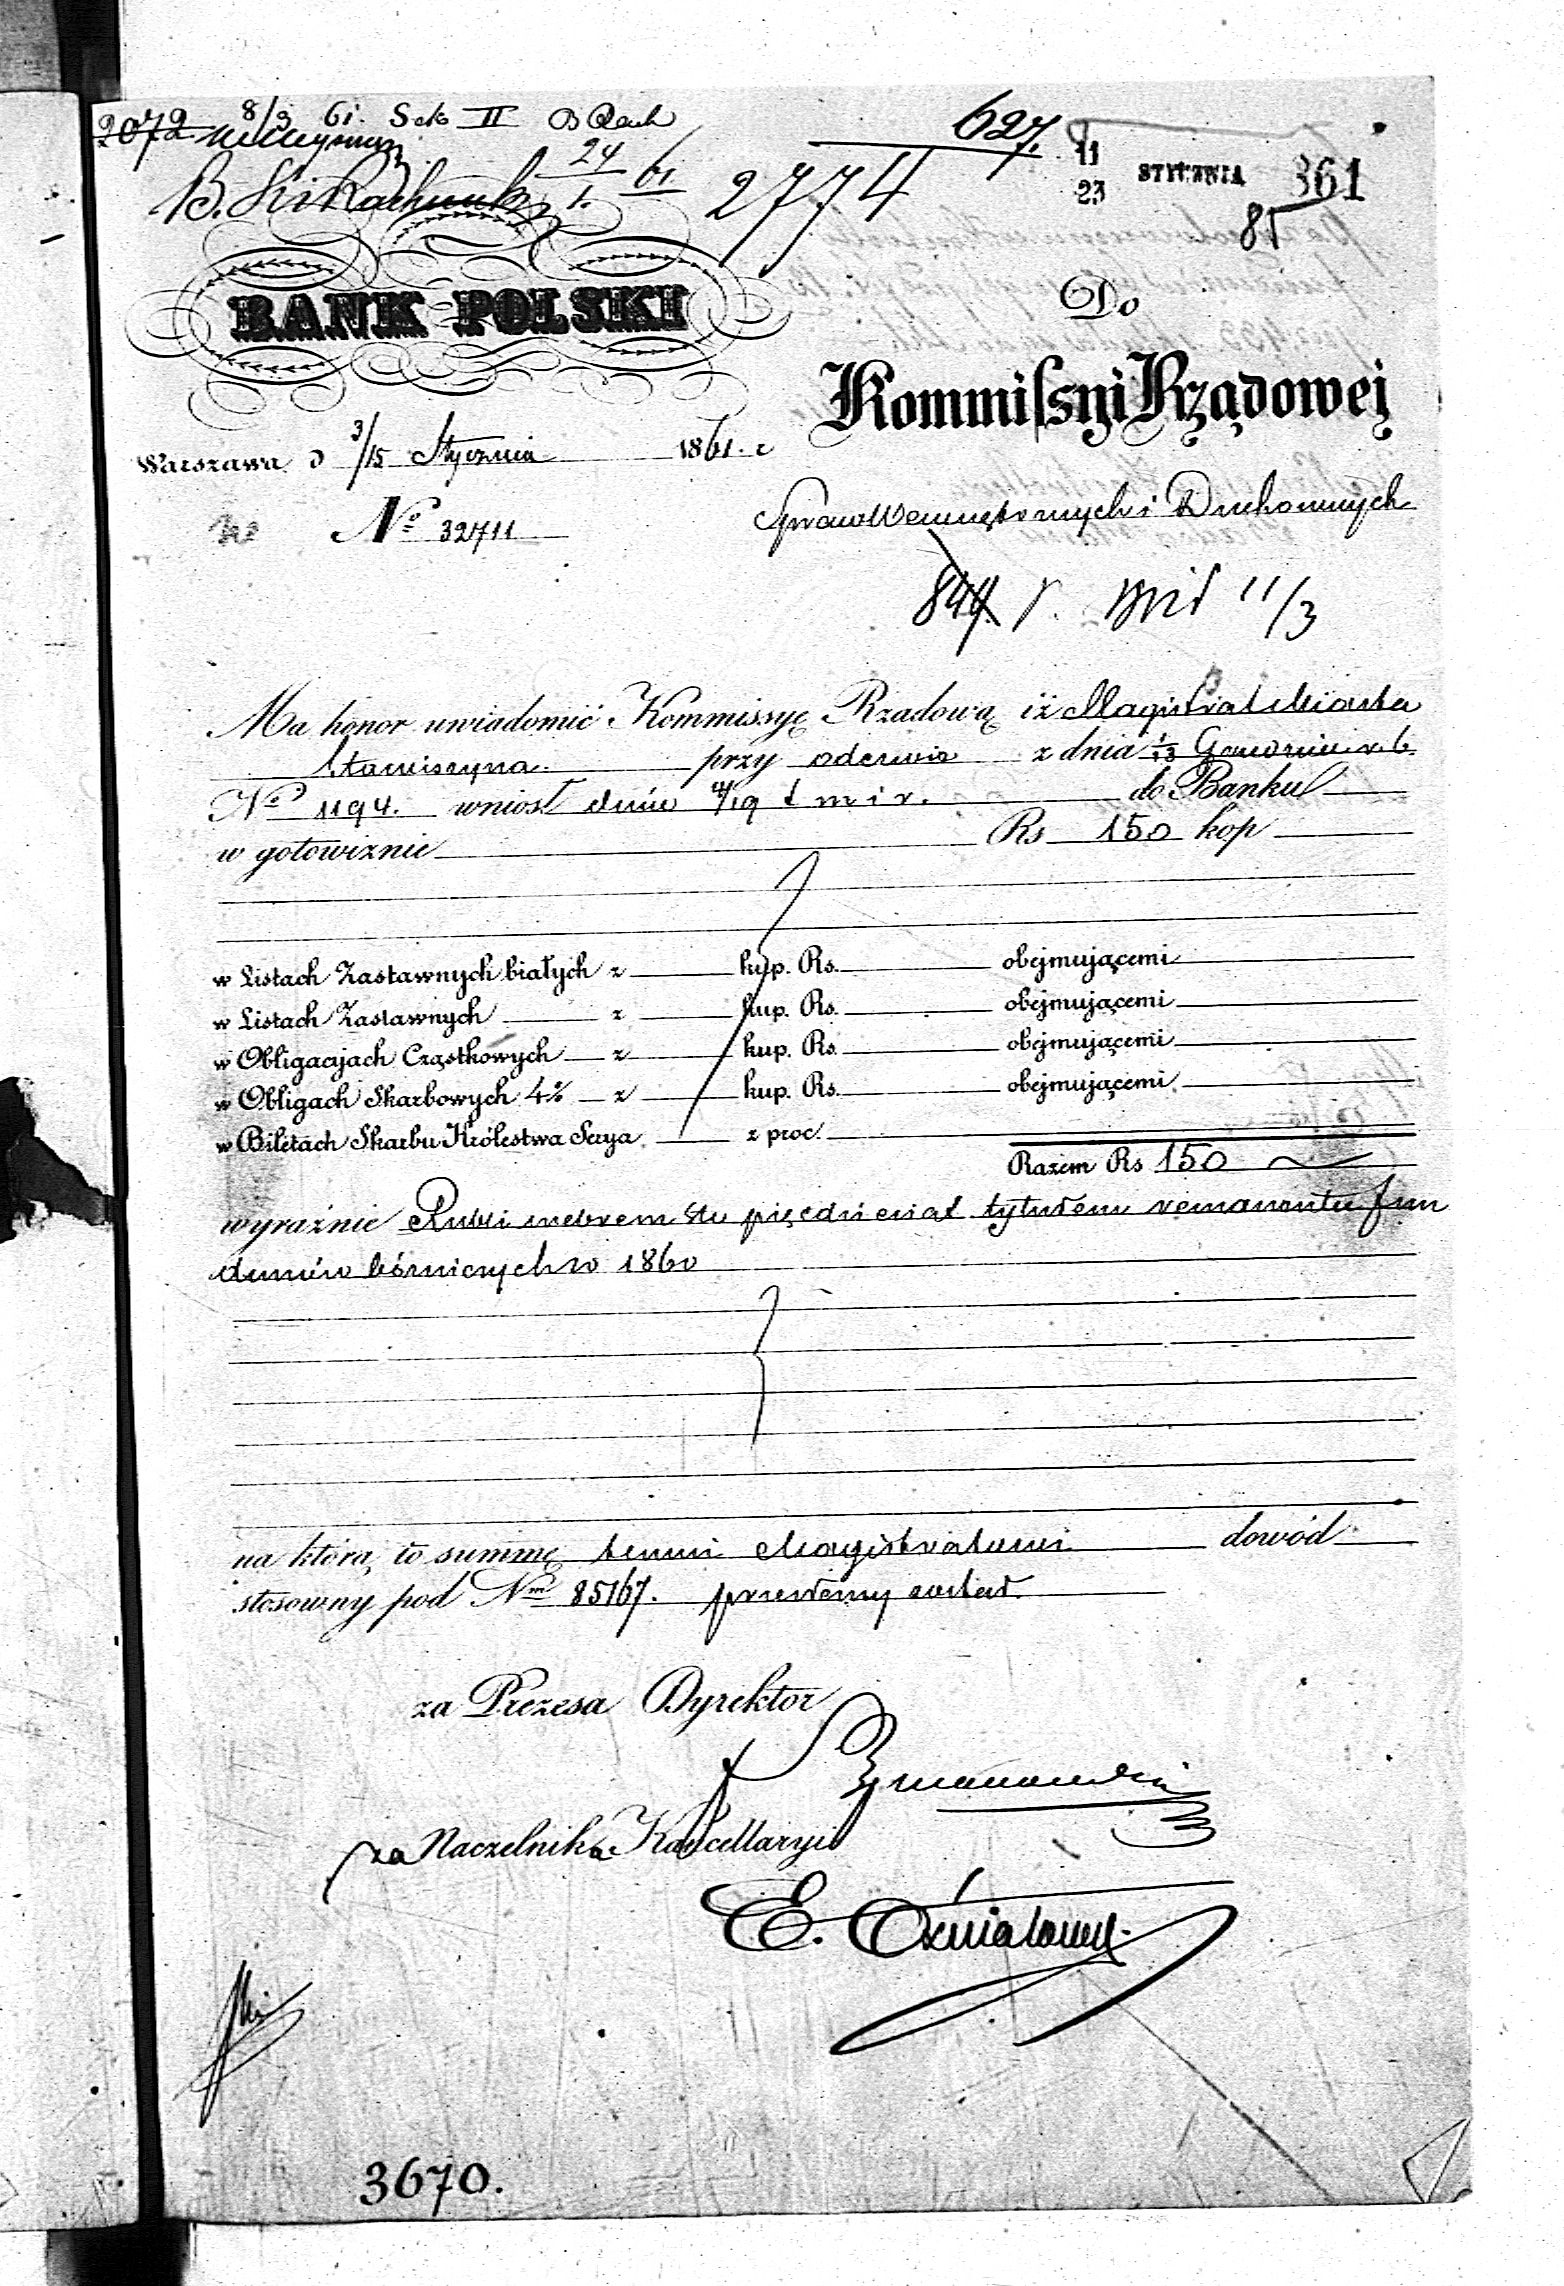 2072 8/3 61. Sek II B Rach
B. Ski Rachunk. 24/1. 61 2774 627.
11/23 STYCZNIA 861
85
BANK POLSKI
Do
Kommissyi Rządowej
Warszawa d 3/15 Stycznia 1861. r
No 32711
Spraw Wewnętrznych i Duchownych
844. r. 11/3
Ma honor uwiadomić Kommissyę Rządową iż Magistrat Miasta
Stawiszyna. przy odezwie z dnia 1/13 Grudnia r. b.
No 1194. wniosł dniu 7/19 t m i r. do Banku
w gotowiznie Rs 150 kop
w Listach Zastawnych białych z kup. Rs. obejmującemi
w Listach Zastawnych z kup. Rs. obejmującemi
w Obligacjach Cząstkowych z kup. Rs. obejmującemi
w Obligach Skarbowych 4% z kup. Rs. obejmującemi
w Biletach Skarbu Królestwa Serya z proc.
Razem Rs 150
wyraźnie Rubli srebrem sto pięćdziesiąt tytułem remanentu fun
duszów leśniczych w 1860
na którą to summę temu Magistratowi dowód
stosowny pod Nrm 85167. przesłany został.
za Prezesa Dyrektor
za Naczelnika Kancellaryi
E.
3670.